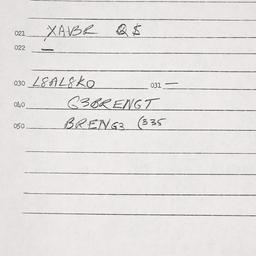 021 XAVBR Q$
022 —
030 L8AL8KO 031 —
040 G3BRENGT
050 BRENG3 (335